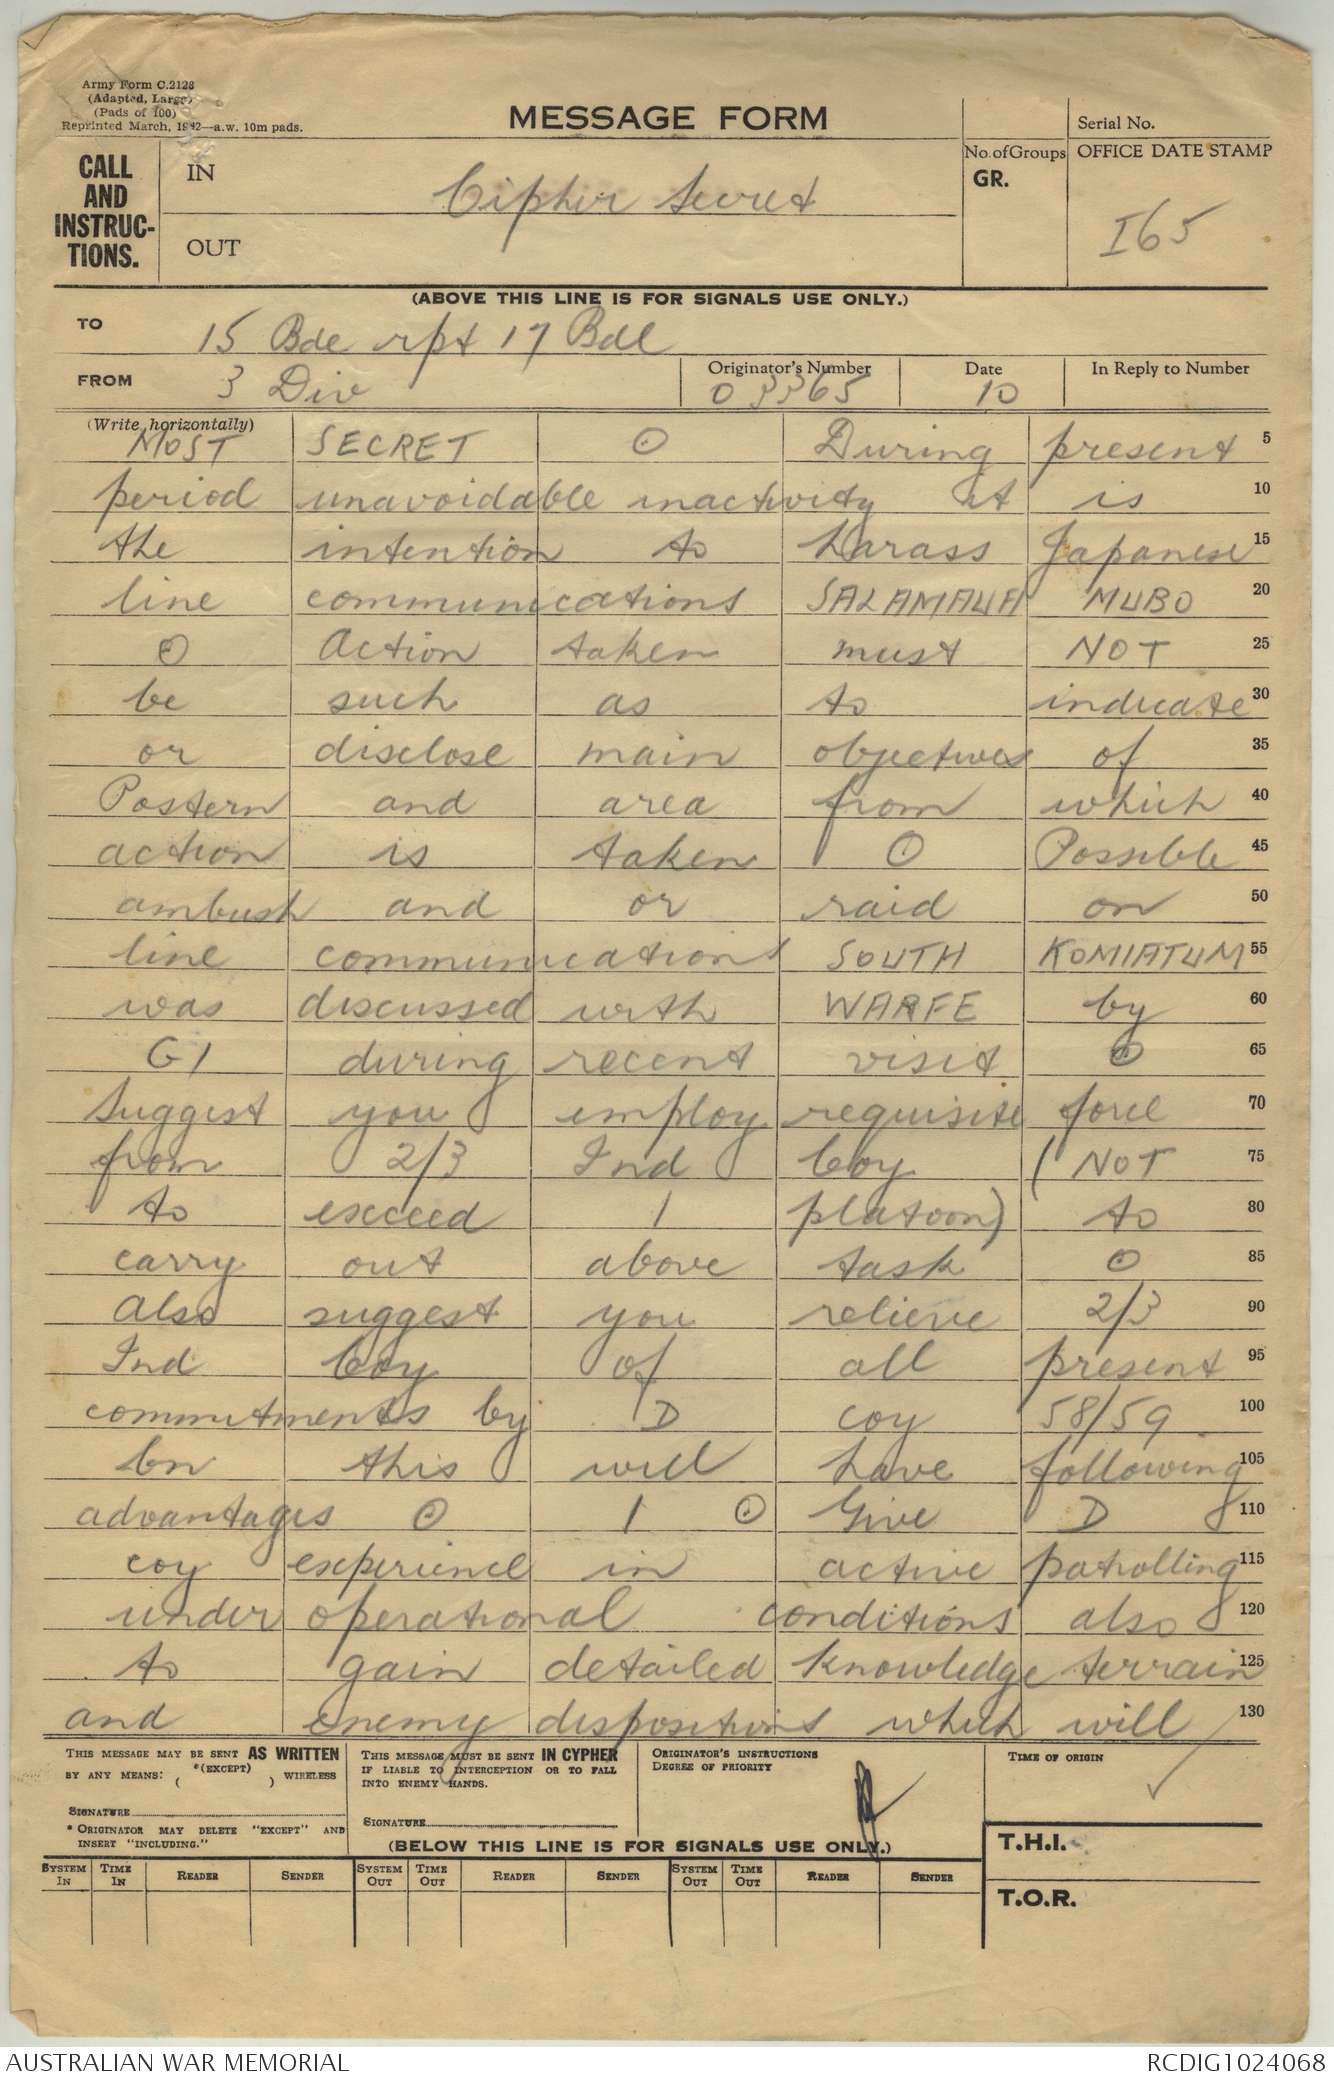 Army Form C.2128
(Adapted, Large)
(Pads of 100)
Reprinted March, 1942—a.w. 10m pads.
MESSAGE FORM
Serial No.
CALL AND INSTRUC-TIONS.
IN
Cipher Secret
OUT
No. of Groups
GR.
OFFICE DATE STAMP
I65
(ABOVE THIS LINE IS FOR SIGNALS USE ONLY.)
TO
15 Bde rpt 17 Bde
FROM
3 Div
Originator's Number
03365
Date
10
In Reply to Number
(Write horizontally)
MOST SECRET ⊙ During present 5
period unavoidable inactivity it is 10
the intention to harass Japanese 15
line communications SALAMAUA MUBO 20
⊙ Action taken must NOT 25
be such as to indicate 30
or disclose main objectives of 35
Postern and area from which 40
action is taken ⊙ Possible 45
ambush and or raid on 50
line communications SOUTH KOMIATUM 55
was discussed with WARFE by 60
G1 during recent visit ⊙ 65
Suggest you employ requisite force 70
from 2/3 Ind Coy (NOT 75
to exceed 1 platoon) to 80
carry out above task ⊙ 85
Also suggest you relieve 2/3 90
Ind Coy of all present 95
commitments by D coy 58/59 100
bn this will have following 105
advantages ⊙ 1 ⊙ Give D 110
coy experience in active patrolling 115
under operational conditions also 120
to gain detailed knowledge terrain 125
and enemy dispositions which will 130
THIS MESSAGE MAY BE SENT AS WRITTEN
BY ANY MEANS: *(EXCEPT) ( ) WIRELESS
SIGNATURE
* ORIGINATOR MAY DELETE "EXCEPT" AND
INSERT "INCLUDING."
THIS MESSAGE MUST BE SENT IN CYPHER
IF LIABLE TO INTERCEPTION OR TO FALL
INTO ENEMY HANDS.
SIGNATURE
ORIGINATOR'S INSTRUCTIONS
DEGREE OF PRIORITY
TIME OF ORIGIN
(BELOW THIS LINE IS FOR SIGNALS USE ONLY.)
T.H.I.
SYSTEM IN TIME IN READER SENDER SYSTEM OUT TIME OUT READER SENDER SYSTEM OUT TIME OUT READER SENDER
T.O.R.
AUSTRALIAN WAR MEMORIAL
RCDIG1024068